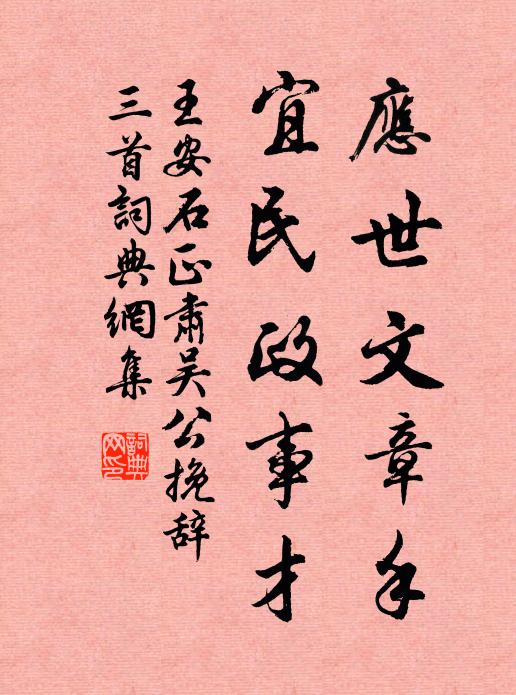 應世文章手
宜民政事才
王安石正肅吴公挽辞
三首詞典網集
詞典
网印